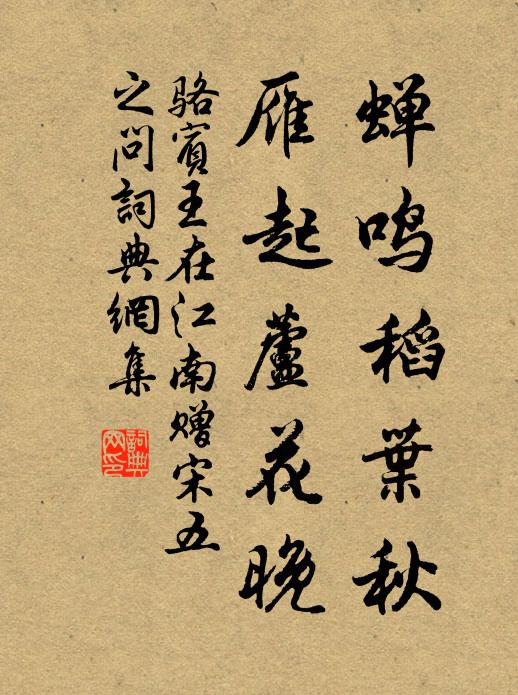 蝉鸣稻葉秋
雁起蘆花晚
骆賓王在江南赠宋五
之问詞典網集
詞典
网印